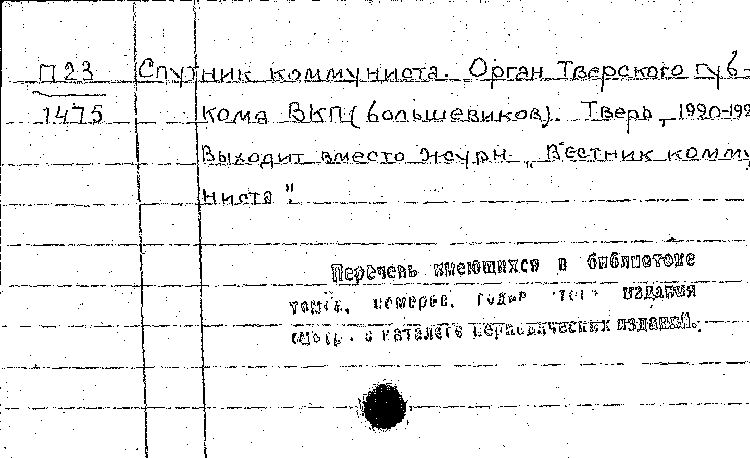 П23 Спутник коммуниста. Орган Тверского губ-
1475 кома ВКП(большевиков). Тверь, 1920-192
Выходит вместо журн. „Вестник комму
ниста".
Перечень имеющихся в библиотеке
томов, номеров, годов издания
смотр. в каталоге периодических изданий.